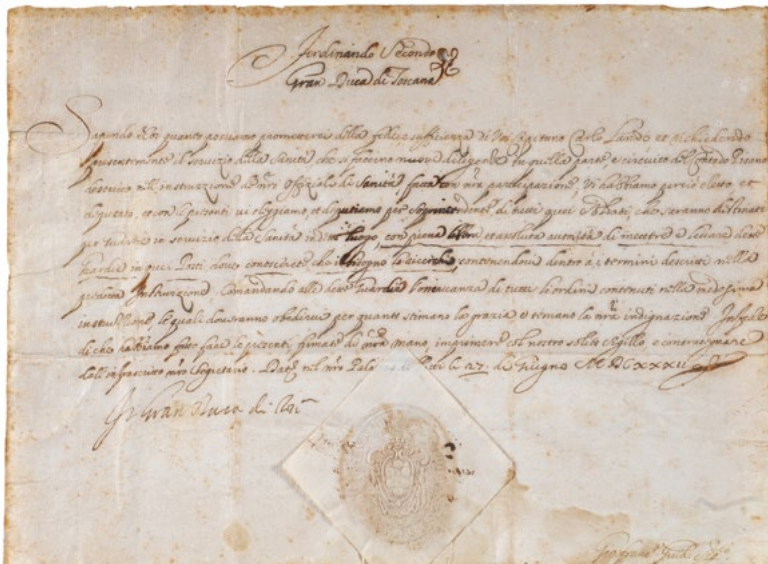 Ferdinando Secondo
Gran Duca di Toscana
Sapendo Noi quanto possiamo prometterci della sufficienza di Voi Capitano Carlo et richiedendo
presentemente il servizio della Sanità che si faccino nuove diligenze in quella parte e circuito del
descritto nell'instruzzione de nri Ofiziali di Sanità, fatta con nra participazione, Vi habbiamo perciò eletto, et
deputato, et con le presenti vi eleggiamo, et deputiamo per di tutti quei Soldati, che saranno
per in servizio della Sanità in luogo, con piena libera et assoluta autorità di mettere e levare dette
Guardie in quei Posti, dove conoscerete che il bisogno lo contenendovi dentro a i termini descritti nella
Instruzione. Comandando alle dette Guardie l'osservanza di tutti li ordini contenuti nella medesima
instruzzione, le quali dovranno obedirvi per quanto stimano la grazia e temano la nra indignazione. In fede
di che habbiamo fatto fare le presenti, firmate di nra mano, impresse col nostro solito Sigillo, e
dall'infrascritto nro Segretario. Dat nel nro li 27. di Giugno
Il Gran Duca di